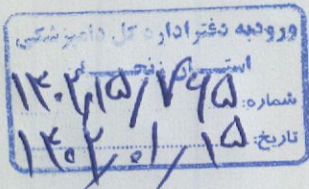 ورودیه دفتر اداره کل دامپزشکی
استان زنجان
شماره: ۱۴۰۲/۱۵/۷۶۵
تاریخ: ۱۴۰۲/۰۱/۱۵